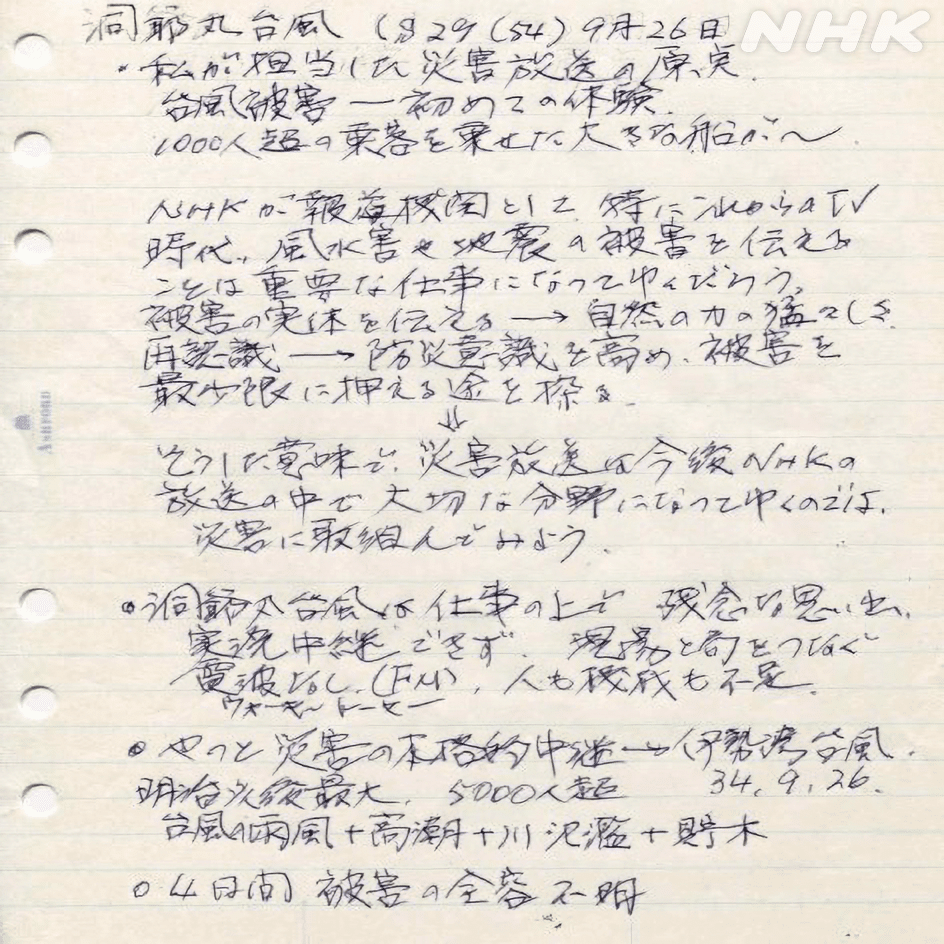 NHK
洞爺丸台風 (S29(54)9月26日
・私が担当した災害放送の原点.
台風被害一初めての体験.
1000人超の乗客を乗せた大きな船が〜
NHKが報道機関として、特にこれからのTV
時代、風水害や地震の被害を伝える
ことは重要な仕事になってゆくだろう。
被害の実体を伝える→自然の力の猛々しさ.
再認識→防災意識を高め、被害を
最少限に押える途を探る.
⇓
そうした意味で、災害放送は今後NHKの
放送の中で大切な分野になってゆくのでは、
災害に取組んでみよう.
・洞爺丸台風は仕事の上で 残念な思い出、
実況中継できず. 現場と局をつなぐ
電波なし.(FM), 人も機械も不足.
ウォーキートーキー
・やっと災害の本格的中継→伊勢湾台風.
明治以後最大. 5000人超 34.9.26.
台風の雨風+高潮+川氾濫+貯木
○4日間 被害の全容不明
ASHFORD